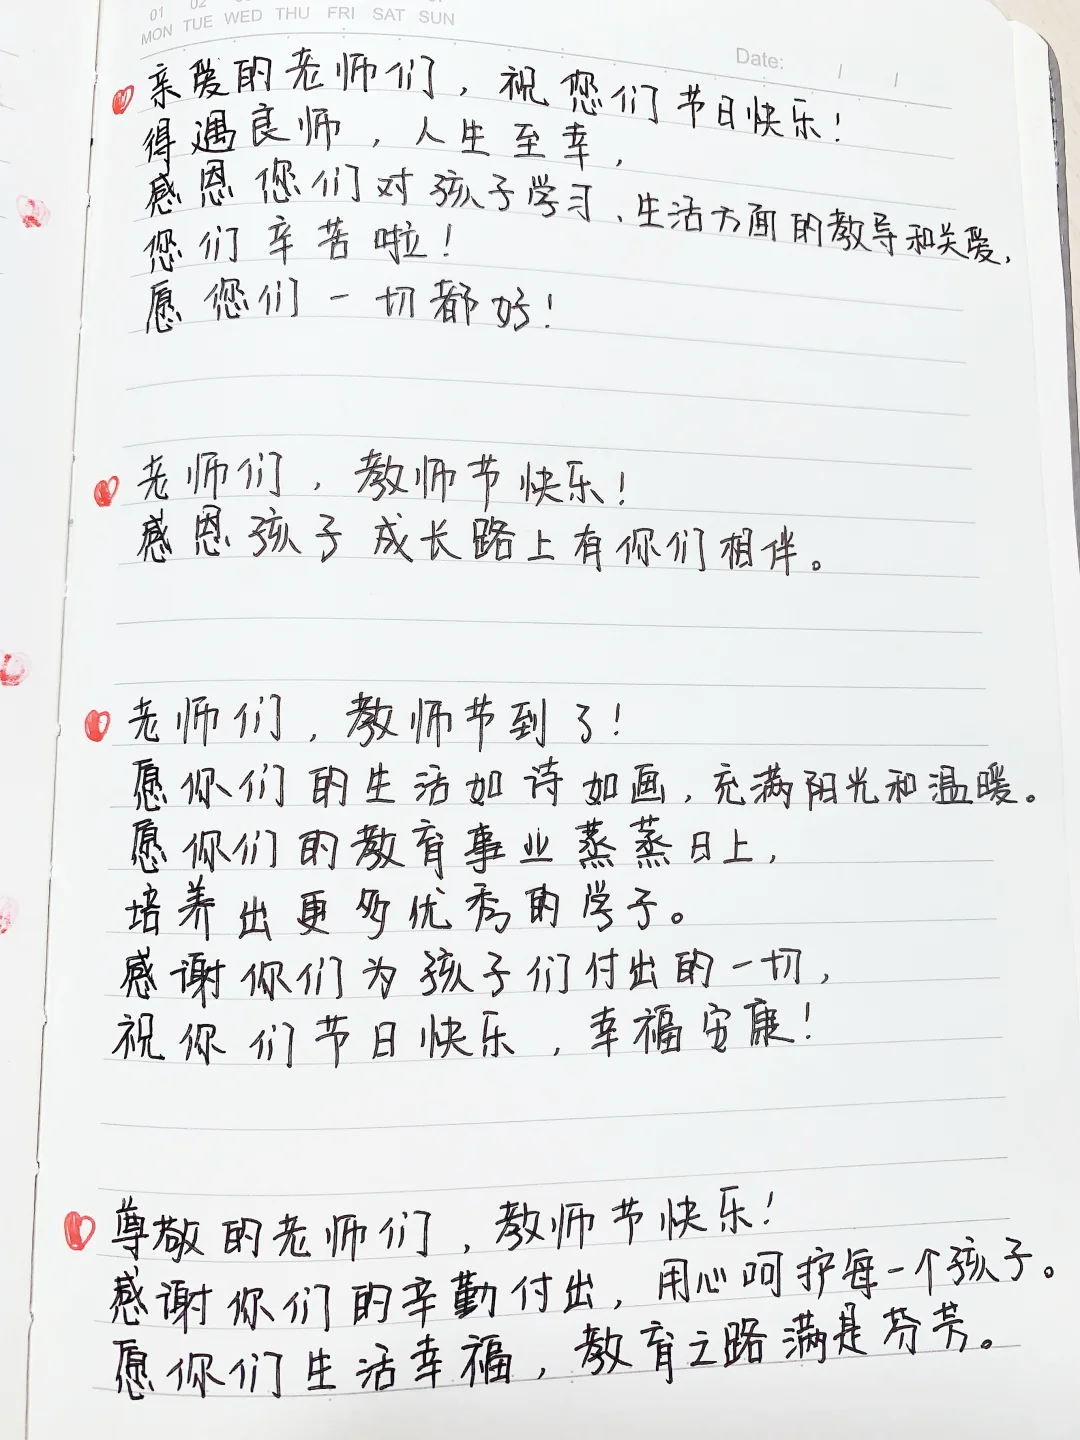 01 02
MON TUE WED THU FRI SAT SUN
Date: / /
亲爱的老师们，祝您们节日快乐！
得遇良师，人生至幸，
感恩您们对孩子学习、生活方面的教导和关爱，
您们辛苦啦！
愿您们一切都好！
老师们，教师节快乐！
感恩孩子成长路上有你们相伴。
老师们，教师节到了！
愿你们的生活如诗如画，充满阳光和温暖。
愿你们的教育事业蒸蒸日上，
培养出更多优秀的学子。
感谢你们为孩子们付出的一切，
祝你们节日快乐，幸福安康！
尊敬的老师们，教师节快乐！
感谢你们的辛勤付出，用心呵护每一个孩子。
愿你们生活幸福，教育之路满是芬芳。